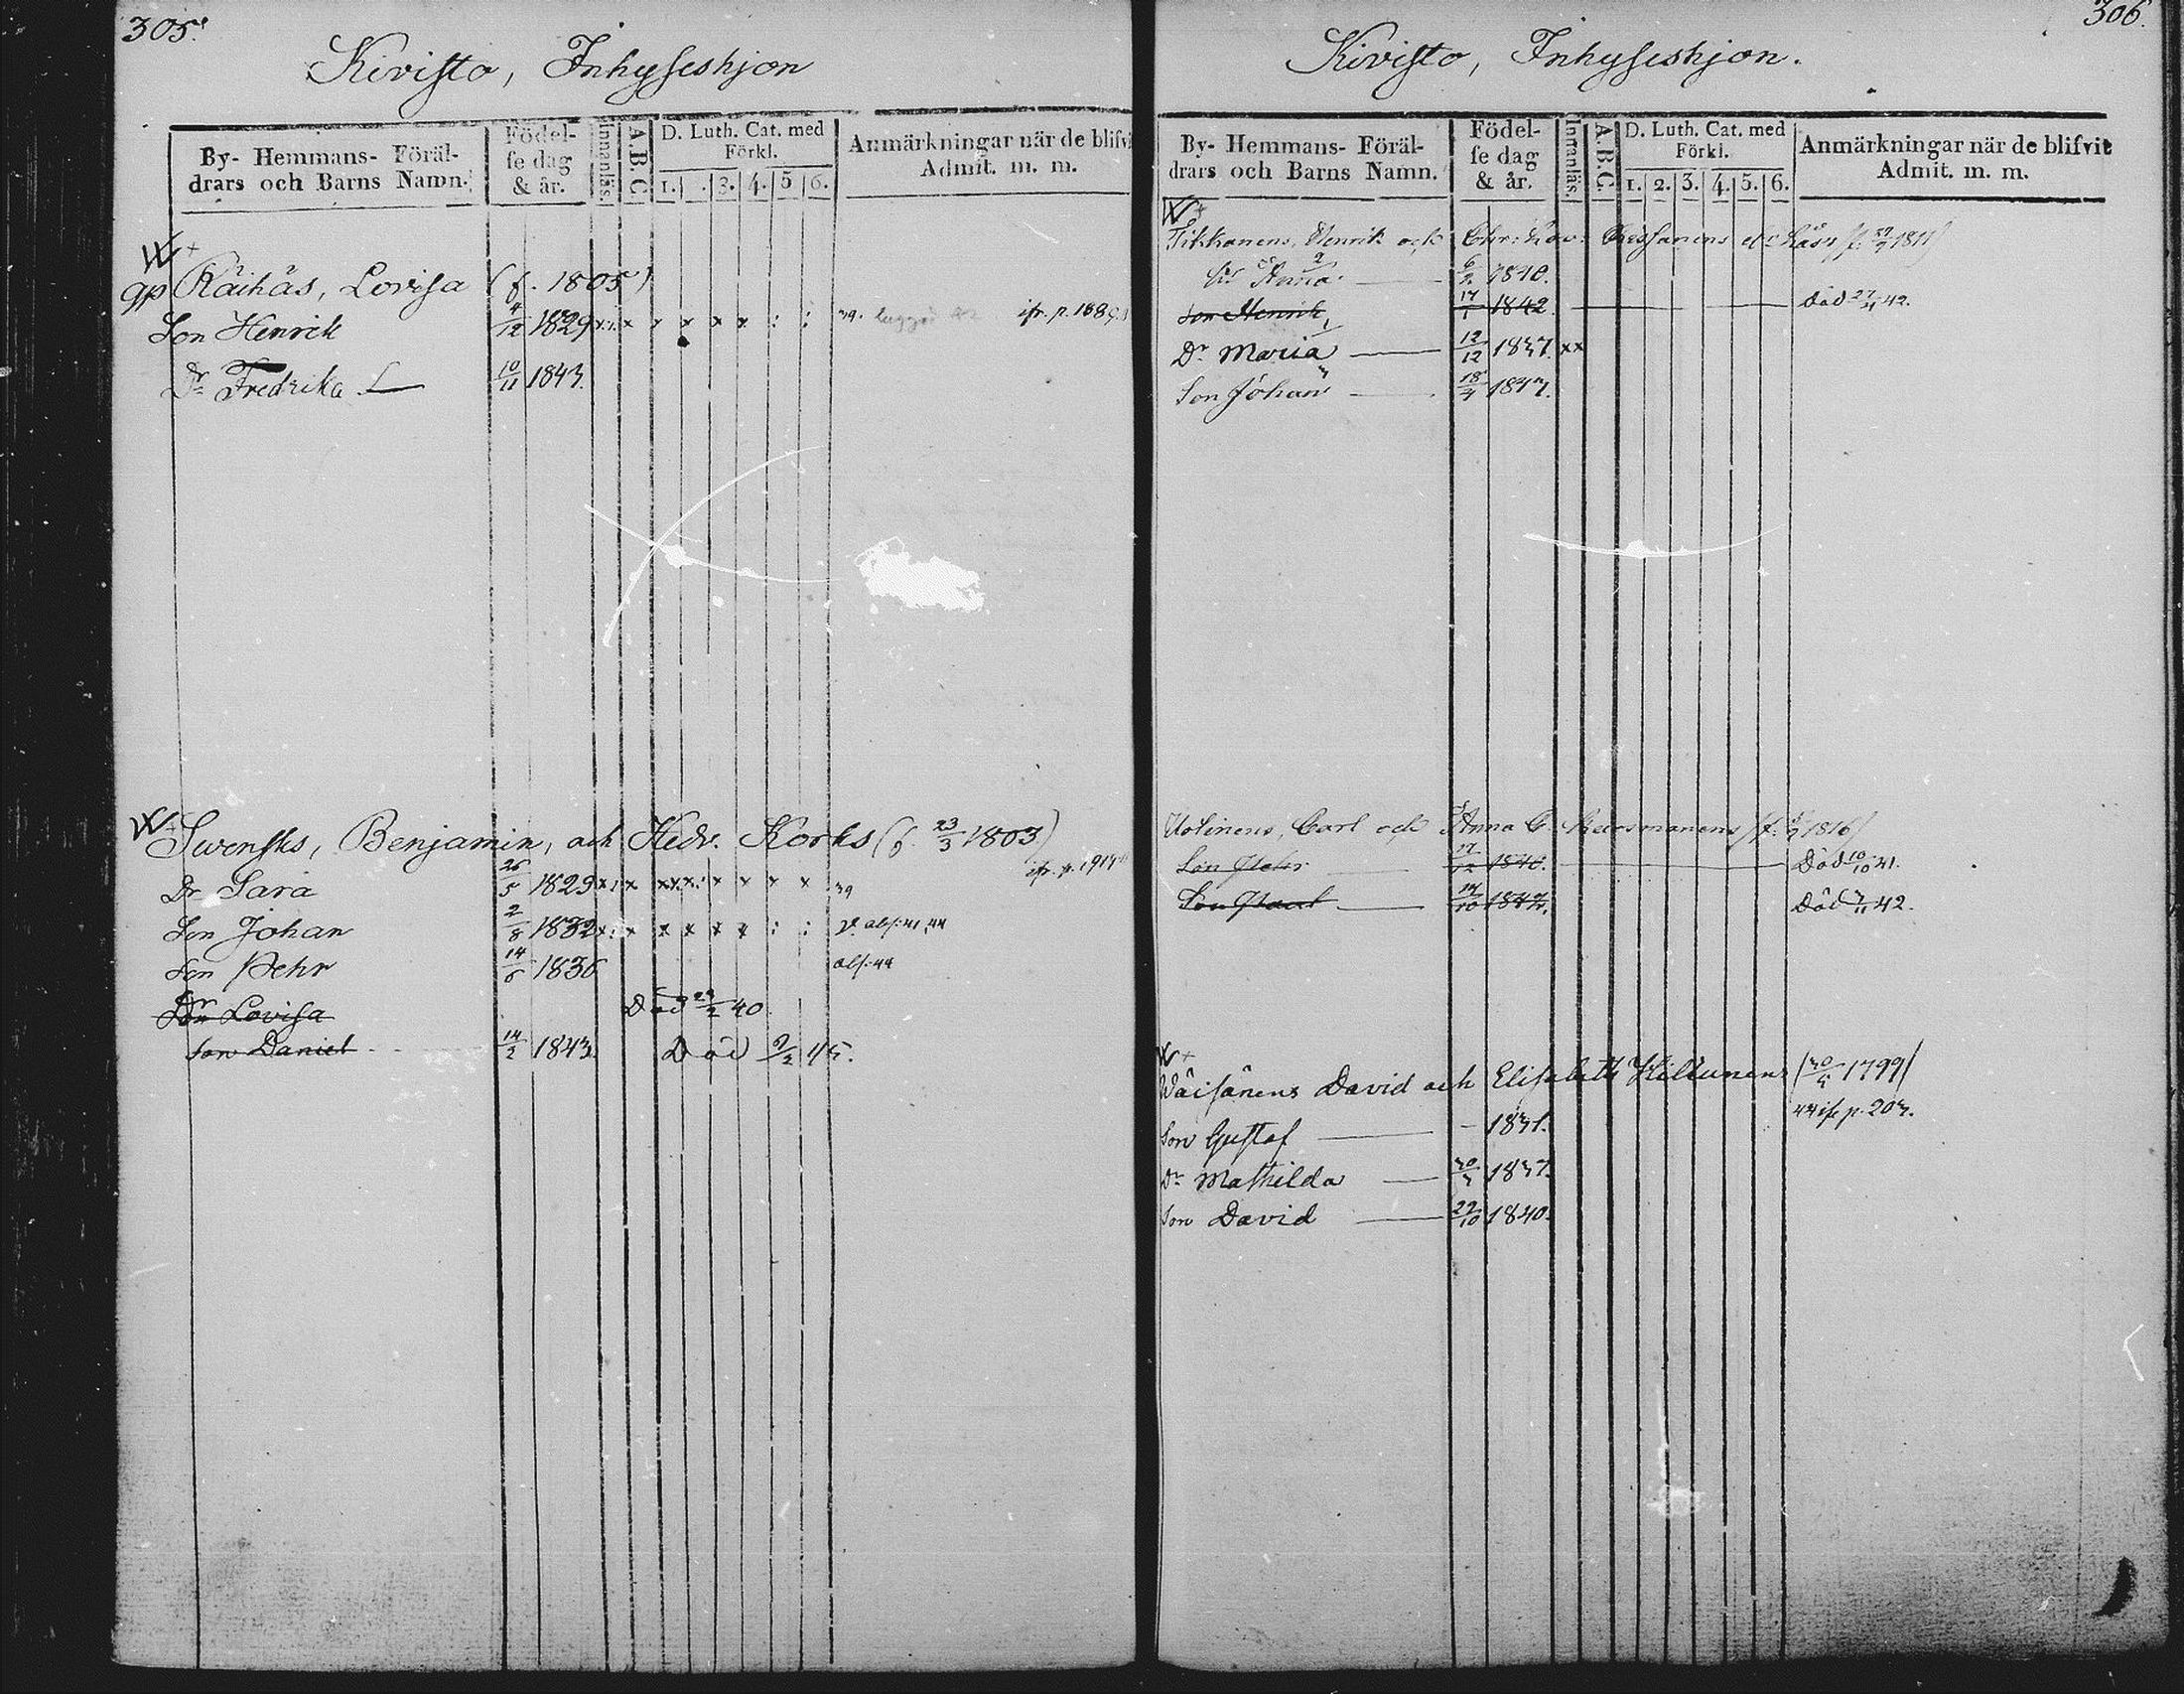 305.
Kivisto, Inhyseshjon
By- Hemmans- Föräl-
drars och Barns Namn.
Födel-
se dag
& år.
Innanläs.
A.B.C
D. Luth. Cat. med
Förkl.
1. 3. 4. 5 6.
Anmärkningar när de blifvi
Admit. m. m.
Räihäs, Lovisa (f. 1805)
Son Henrik 4/12 1829 x x x x x x : :
Dr Fredrika 10/11 1843.
Swensks, Benjamin, och Hedv. Korks (f. 23/3 1803)
Dr Sara 26/5 1829 x x x x x x
Son Johan 2/8 1832 x x x x x x : : abs: 41, 44
Son Pehr 14/6 1836 abs: 44
Dr Lovisa Död 29/2 40
Son Daniel 14/2 1843. Död 9/2 45.
306.
Kivisto, Inhyseshjon.
By- Hemmans- Föräl-
drars och Barns Namn.
Födel-
se dag
& år.
Innanläs.
A.B.C.
D. Luth. Cat. med
Förkl.
1. 2. 3. 4. 5. 6.
Anmärkningar när de blifvit
Admit. m. m.
Tikkanens, Henrik och Chr: Lov:
Dr Anna 6/2 1840.
Son Henrik 1842. Död 42.
Dr Maria 12/12 1837. x x
Son Johan 18/4 1847.
Carl och Anna C. 1816)
Son Pehr 1840. Död 10/10 41.
Son Paul 14/10 1842. Död 42.
Wäisänens David och Elisabeth Hiltunens (30/5 1799)
Son Gustaf - 1831.
Dr Mathilda 1837.
Son David 22/10 1840.